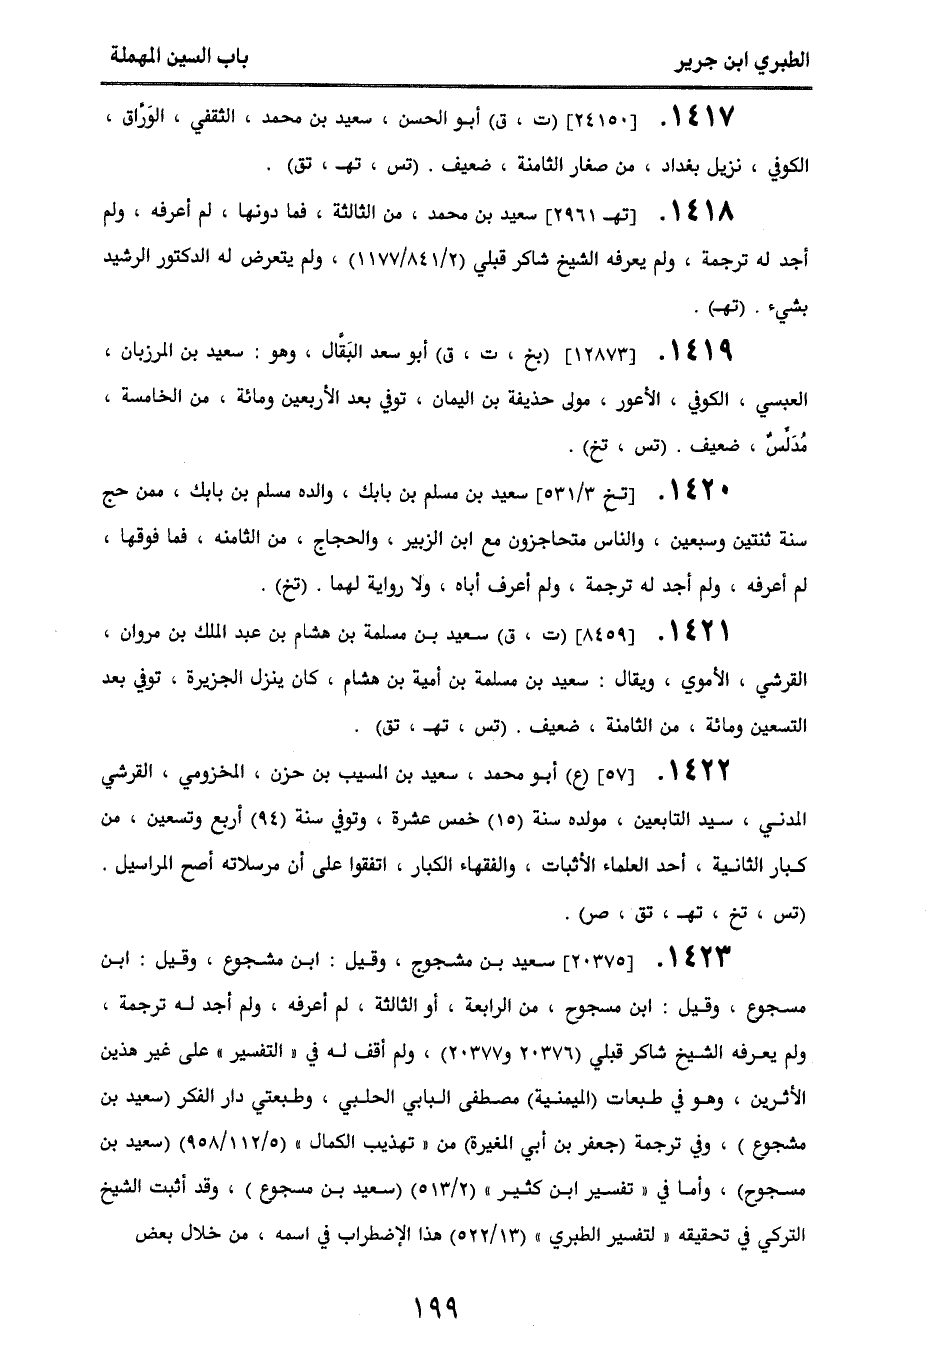 الطبري ابن جرير
باب السين المهملة
١٤١٧. [٢٤١٥٠] (ت ، ق) أبو الحسن ، سعيد بن محمد ، الثقفي ، الوَرَّاق ،
الكوفي ، نزيل بغداد ، من صغار الثامنة ، ضعيف . (تس ، تهـ ، تق) .
١٤١٨. [تهـ ٢٩٦١] سعيد بن محمد ، من الثالثة ، فما دونها ، لم أعرفه ، ولم
أجد له ترجمة ، ولم يعرفه الشيخ شاكر قبلي (١١٧٧/٨٤١/٢) ، ولم يتعرض له الدكتور الرشيد
بشيء . (تهـ) .
١٤١٩. [١٢٨٧٣] (بخ ، ت ، ق) أبو سعد البَقَّال ، وهو : سعيد بن المرزبان ،
العبسي ، الكوفي ، الأعور ، مولى حذيفة بن اليمان ، توفي بعد الأربعين ومائة ، من الخامسة ،
مُدَلِّسٌ ، ضعيف . (تس ، تخ) .
١٤٢٠. [تخ ٥٣١/٣] سعيد بن مسلم بن بابك ، والده مسلم بن بابك ، ممن حج
سنة ثنتين وسبعين ، والناس متحاجزون مع ابن الزبير ، والحجاج ، من الثامنه ، فما فوقها ،
لم أعرفه ، ولم أجد له ترجمة ، ولم أعرف أباه ، ولا رواية لهما . (تخ) .
١٤٢١. [٨٤٥٩] (ت ، ق) سعيد بن مسلمة بن هشام بن عبد الملك بن مروان ،
القرشي ، الأموي ، ويقال : سعيد بن مسلمة بن أمية بن هشام ، كان ينزل الجزيرة ، توفي بعد
التسعين ومائة ، من الثامنة ، ضعيف . (تس ، تهـ ، تق) .
١٤٢٢. [٥٧] (ع) أبو محمد ، سعيد بن المسيب بن حزن ، المخزومي ، القرشي
المدني ، سيد التابعين ، مولده سنة (١٥) خمس عشرة ، وتوفي سنة (٩٤) أربع وتسعين ، من
كبار الثانية ، أحد العلماء الأثبات ، والفقهاء الكبار ، اتفقوا على أن مرسلاته أصح المراسيل .
(تس ، تخ ، تهـ ، تق ، صر) .
١٤٢٣. [٢٠٣٧٥] سعيد بن مشجوج ، وقيل : ابن مشجوع ، وقيل : ابن
مسجوع ، وقيل : ابن مسجوح ، من الرابعة ، أو الثالثة ، لم أعرفه ، ولم أجد له ترجمة ،
ولم يعرفه الشيخ شاكر قبلي (٢٠٣٧٦ و٢٠٣٧٧) ، ولم أقف له في « التفسير » على غير هذين
الأثرين ، وهو في طبعات (الميمنية) مصطفى البابي الحلبي ، وطبعتي دار الفكر (سعيد بن
مشجوع ) ، وفي ترجمة (جعفر بن أبي المغيرة) من « تهذيب الكمال » (٩٥٨/١١٢/٥) (سعيد بن
مسجوح) ، وأما في « تفسير ابن كثير » (٥١٣/٢) (سعيد بن مسجوع ) ، وقد أثبت الشيخ
التركي في تحقيقه « لتفسير الطبري » (٥٢٢/١٣) هذا الإضطراب في اسمه ، من خلال بعض
١٩٩